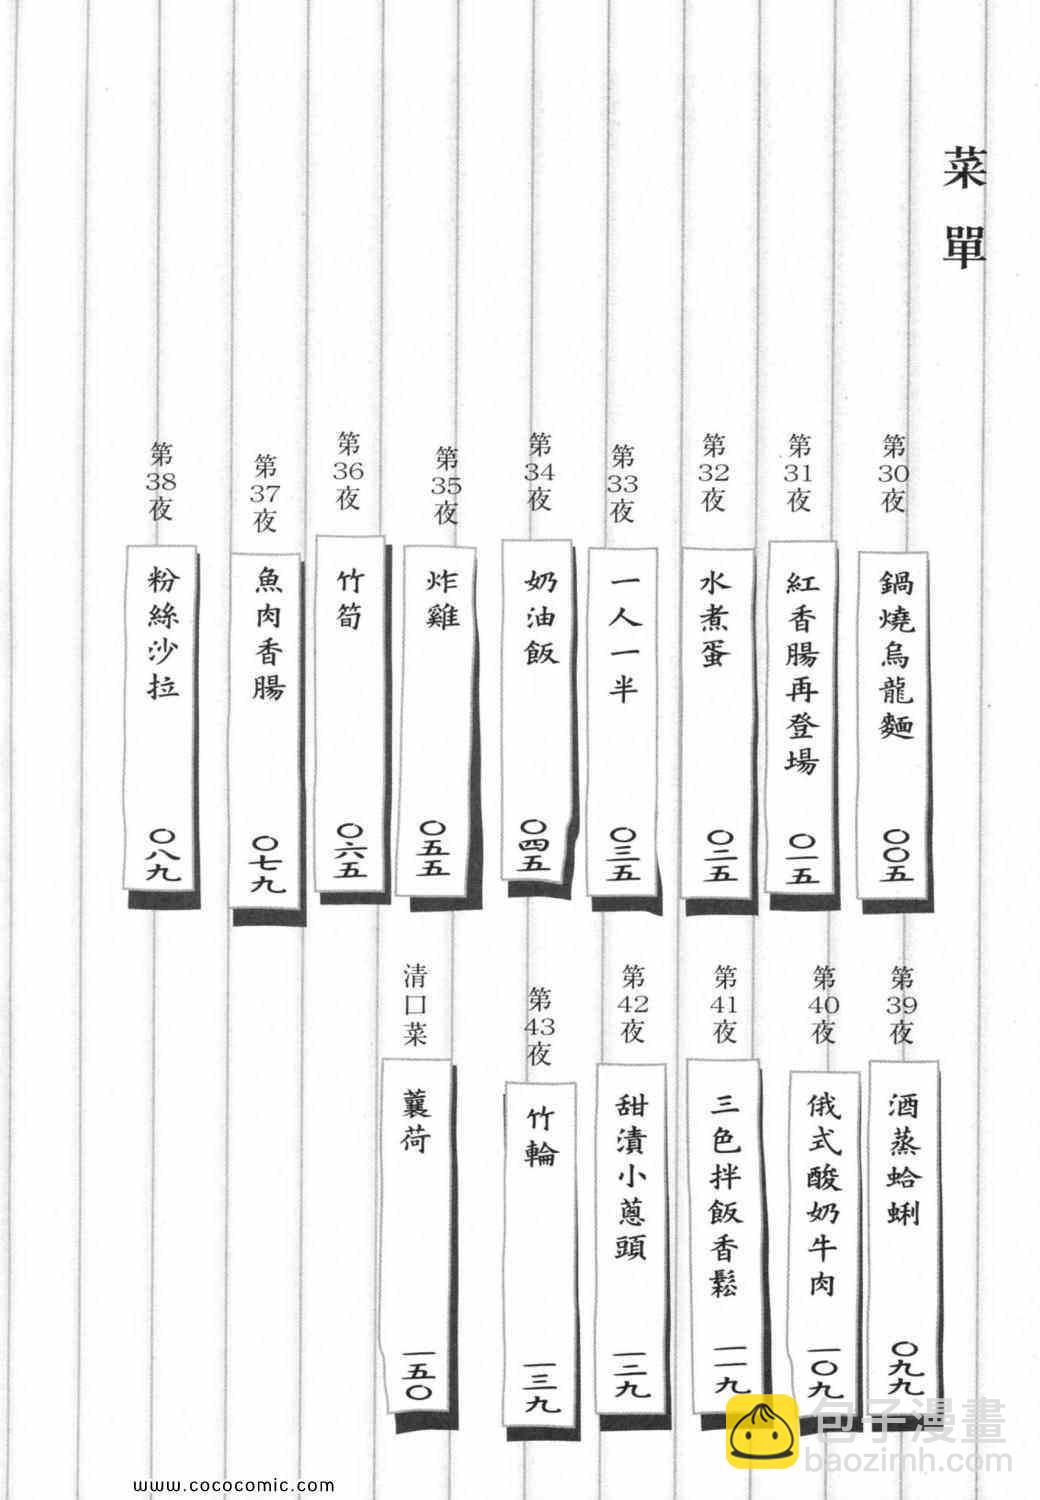 菜單
第30夜
鍋燒烏龍麵
〇〇五
第31夜
紅香腸再登場
〇一五
第32夜
水煮蛋
〇二五
第33夜
一人一半
〇三五
第34夜
奶油飯
〇四五
第35夜
炸雞
〇五五
第36夜
竹筍
〇六五
第37夜
魚肉香腸
〇七九
第38夜
粉絲沙拉
〇八九
第39夜
酒蒸蛤蜊
〇九九
第40夜
俄式酸奶牛肉
一〇九
第41夜
三色拌飯香鬆
一一九
第42夜
甜漬小蔥頭
一二九
第43夜
竹輪
一三九
清口菜
蘘荷
一五〇
包子漫畫
baozimh.com
www.cococomic.com